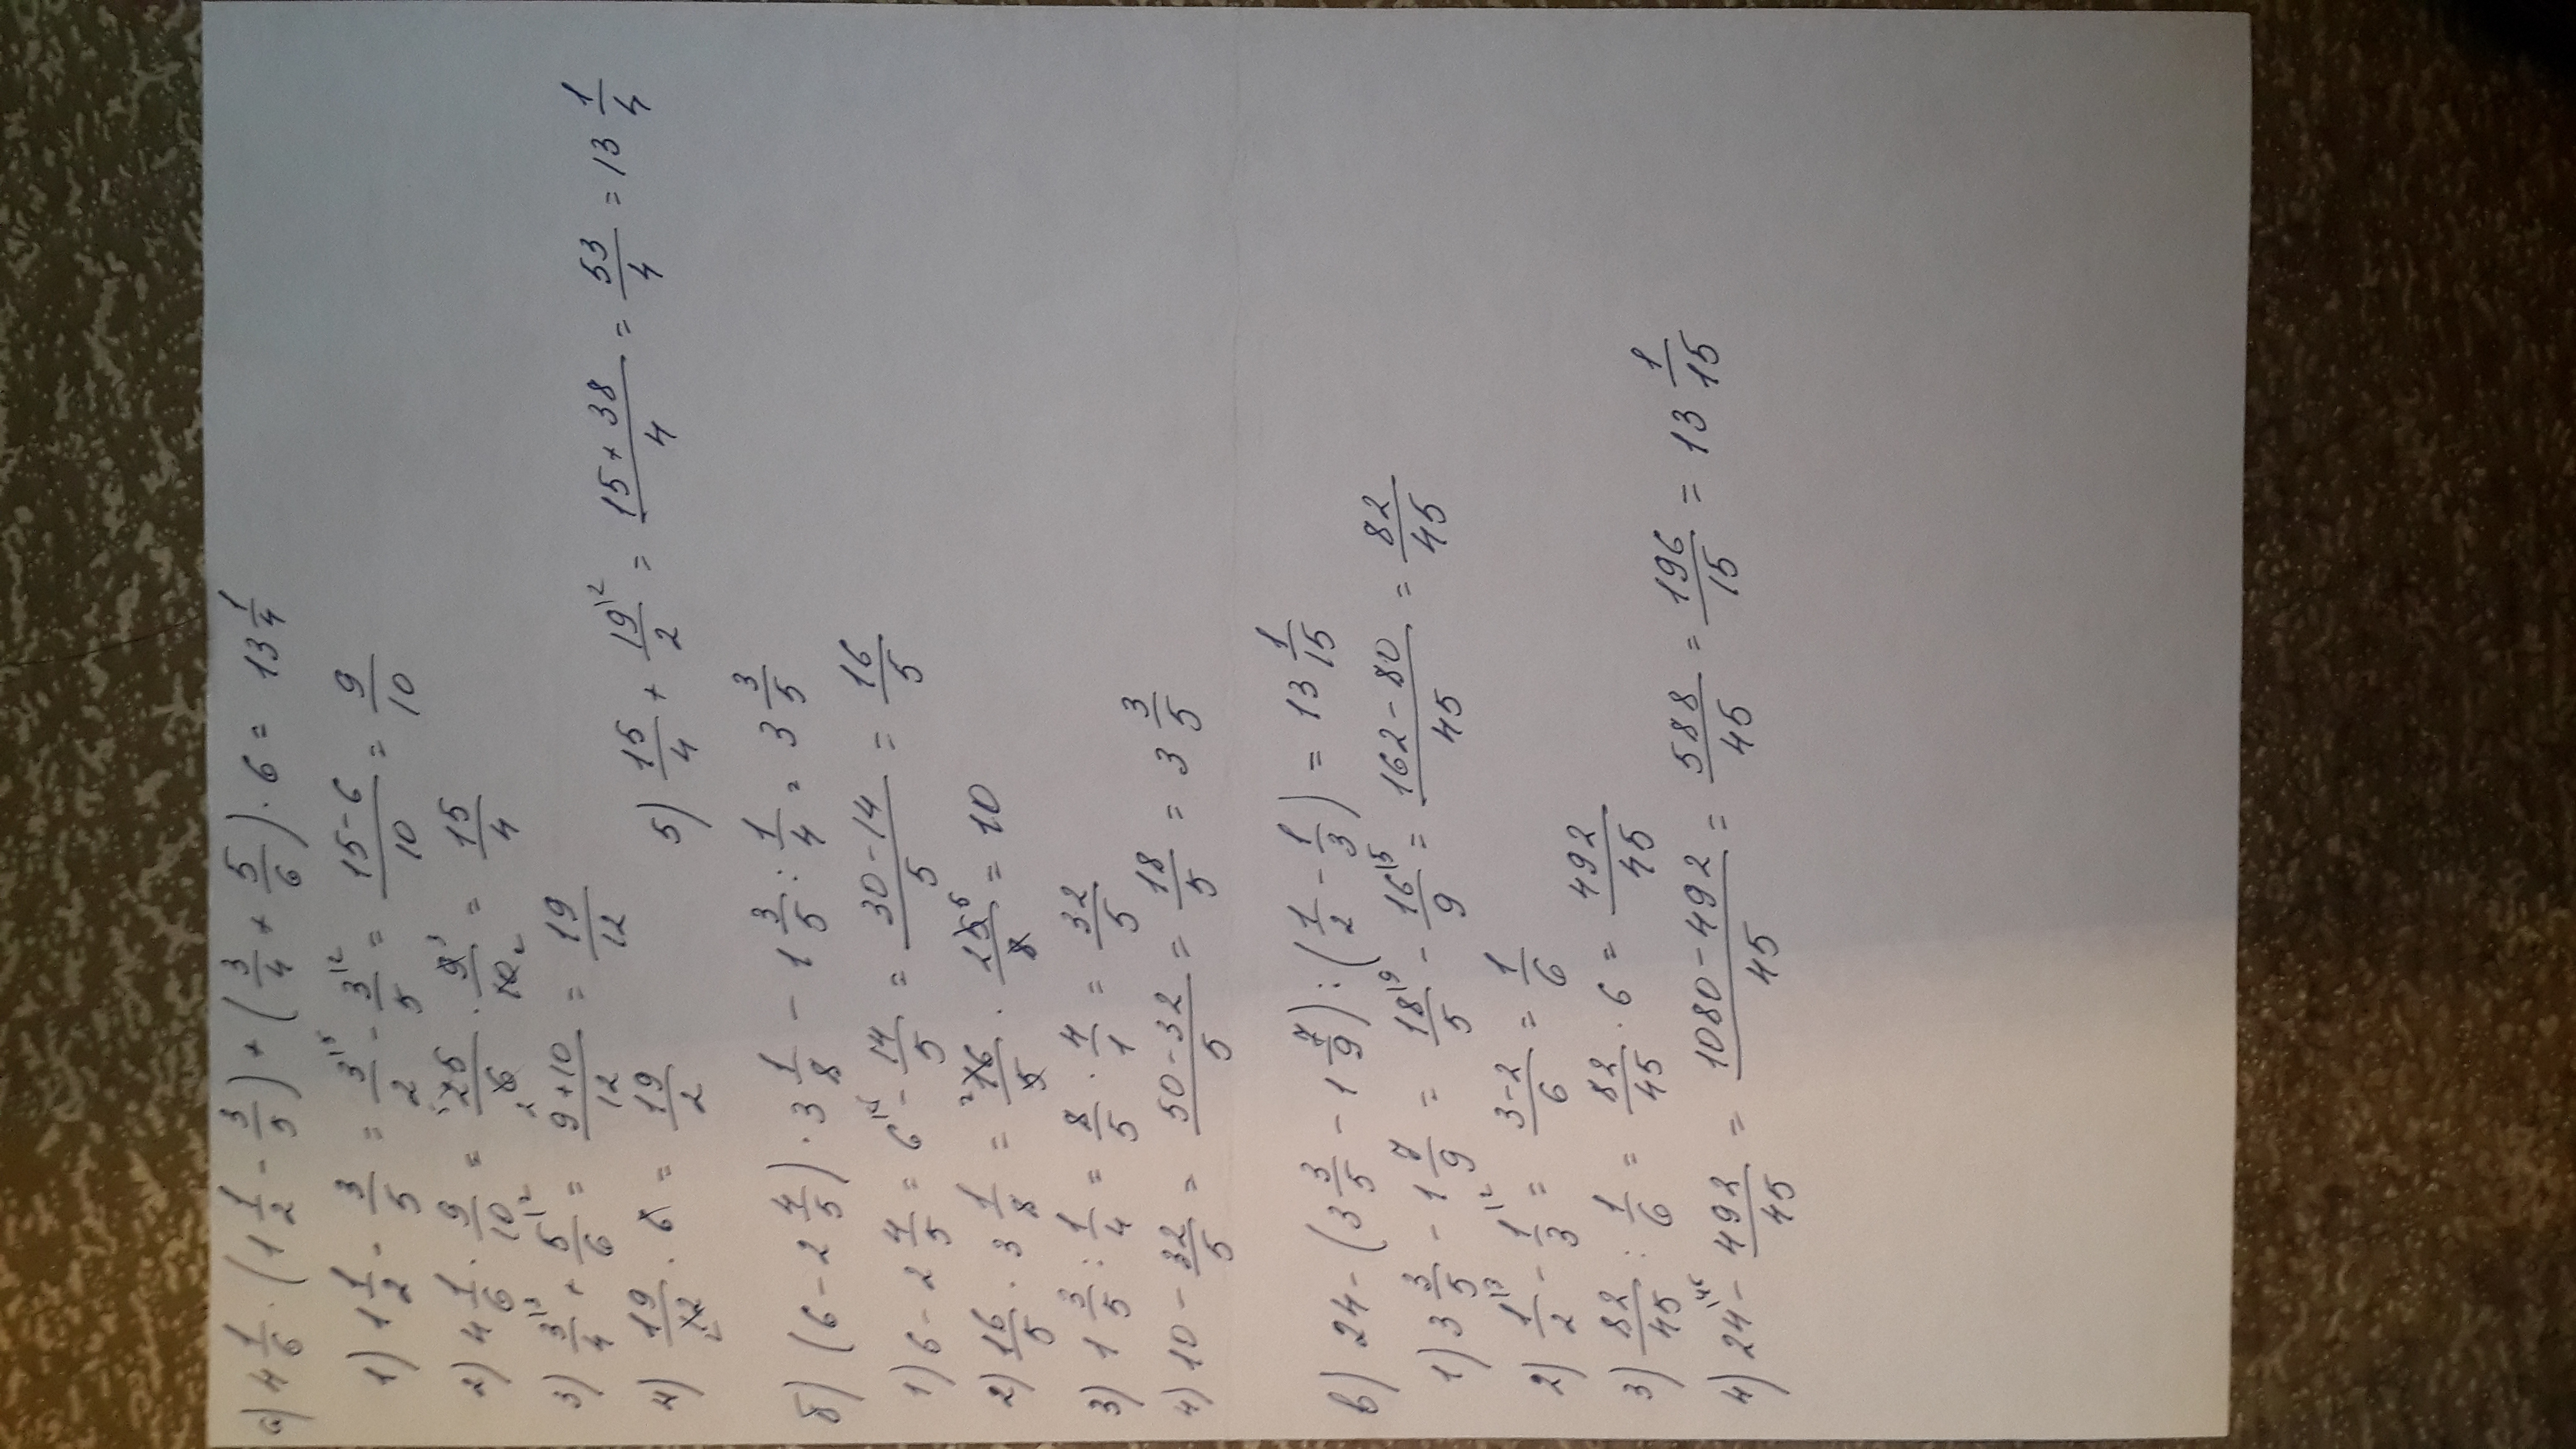 а) 4 1/6 · (1 1/2 - 3/5) + (3/4 + 5/6) · 6 = 13 1/4
1) 1 1/2 - 3/5 = 3\5/2 - 3\2/5 = 15-6/10 = 9/10
2) 4 1/6 · 9/10 = 25/6 · 9/10 = 15/4
3) 3\3/4 + 5\2/6 = 9+10/12 = 19/12
4) 19/12 · 6 = 19/2
5) 15/4 + 19\2/2 = 15+38/4 = 53/4 = 13 1/4
б) (6 - 2 4/5) · 3 1/8 - 1 3/5 : 1/4 = 3 3/5
1) 6 - 2 4/5 = 6\5 - 14/5 = 30-14/5 = 16/5
2) 16/5 · 3 1/8 = 16/5 · 25/8 = 10
3) 1 3/5 : 1/4 = 8/5 · 4/1 = 32/5
4) 10 - 32/5 = 50-32/5 = 18/5 = 3 3/5
в) 24 - (3 3/5 - 1 7/9) : (1/2 - 1/3) = 13 1/15
1) 3 3/5 - 1 7/9 = 18\9/5 - 16\5/9 = 162-80/45 = 82/45
2) 1\3/2 - 1\2/3 = 3-2/6 = 1/6
3) 82/45 : 1/6 = 82/45 · 6 = 492/45
4) 24\45 - 492/45 = 1080-492/45 = 588/45 = 196/15 = 13 1/15